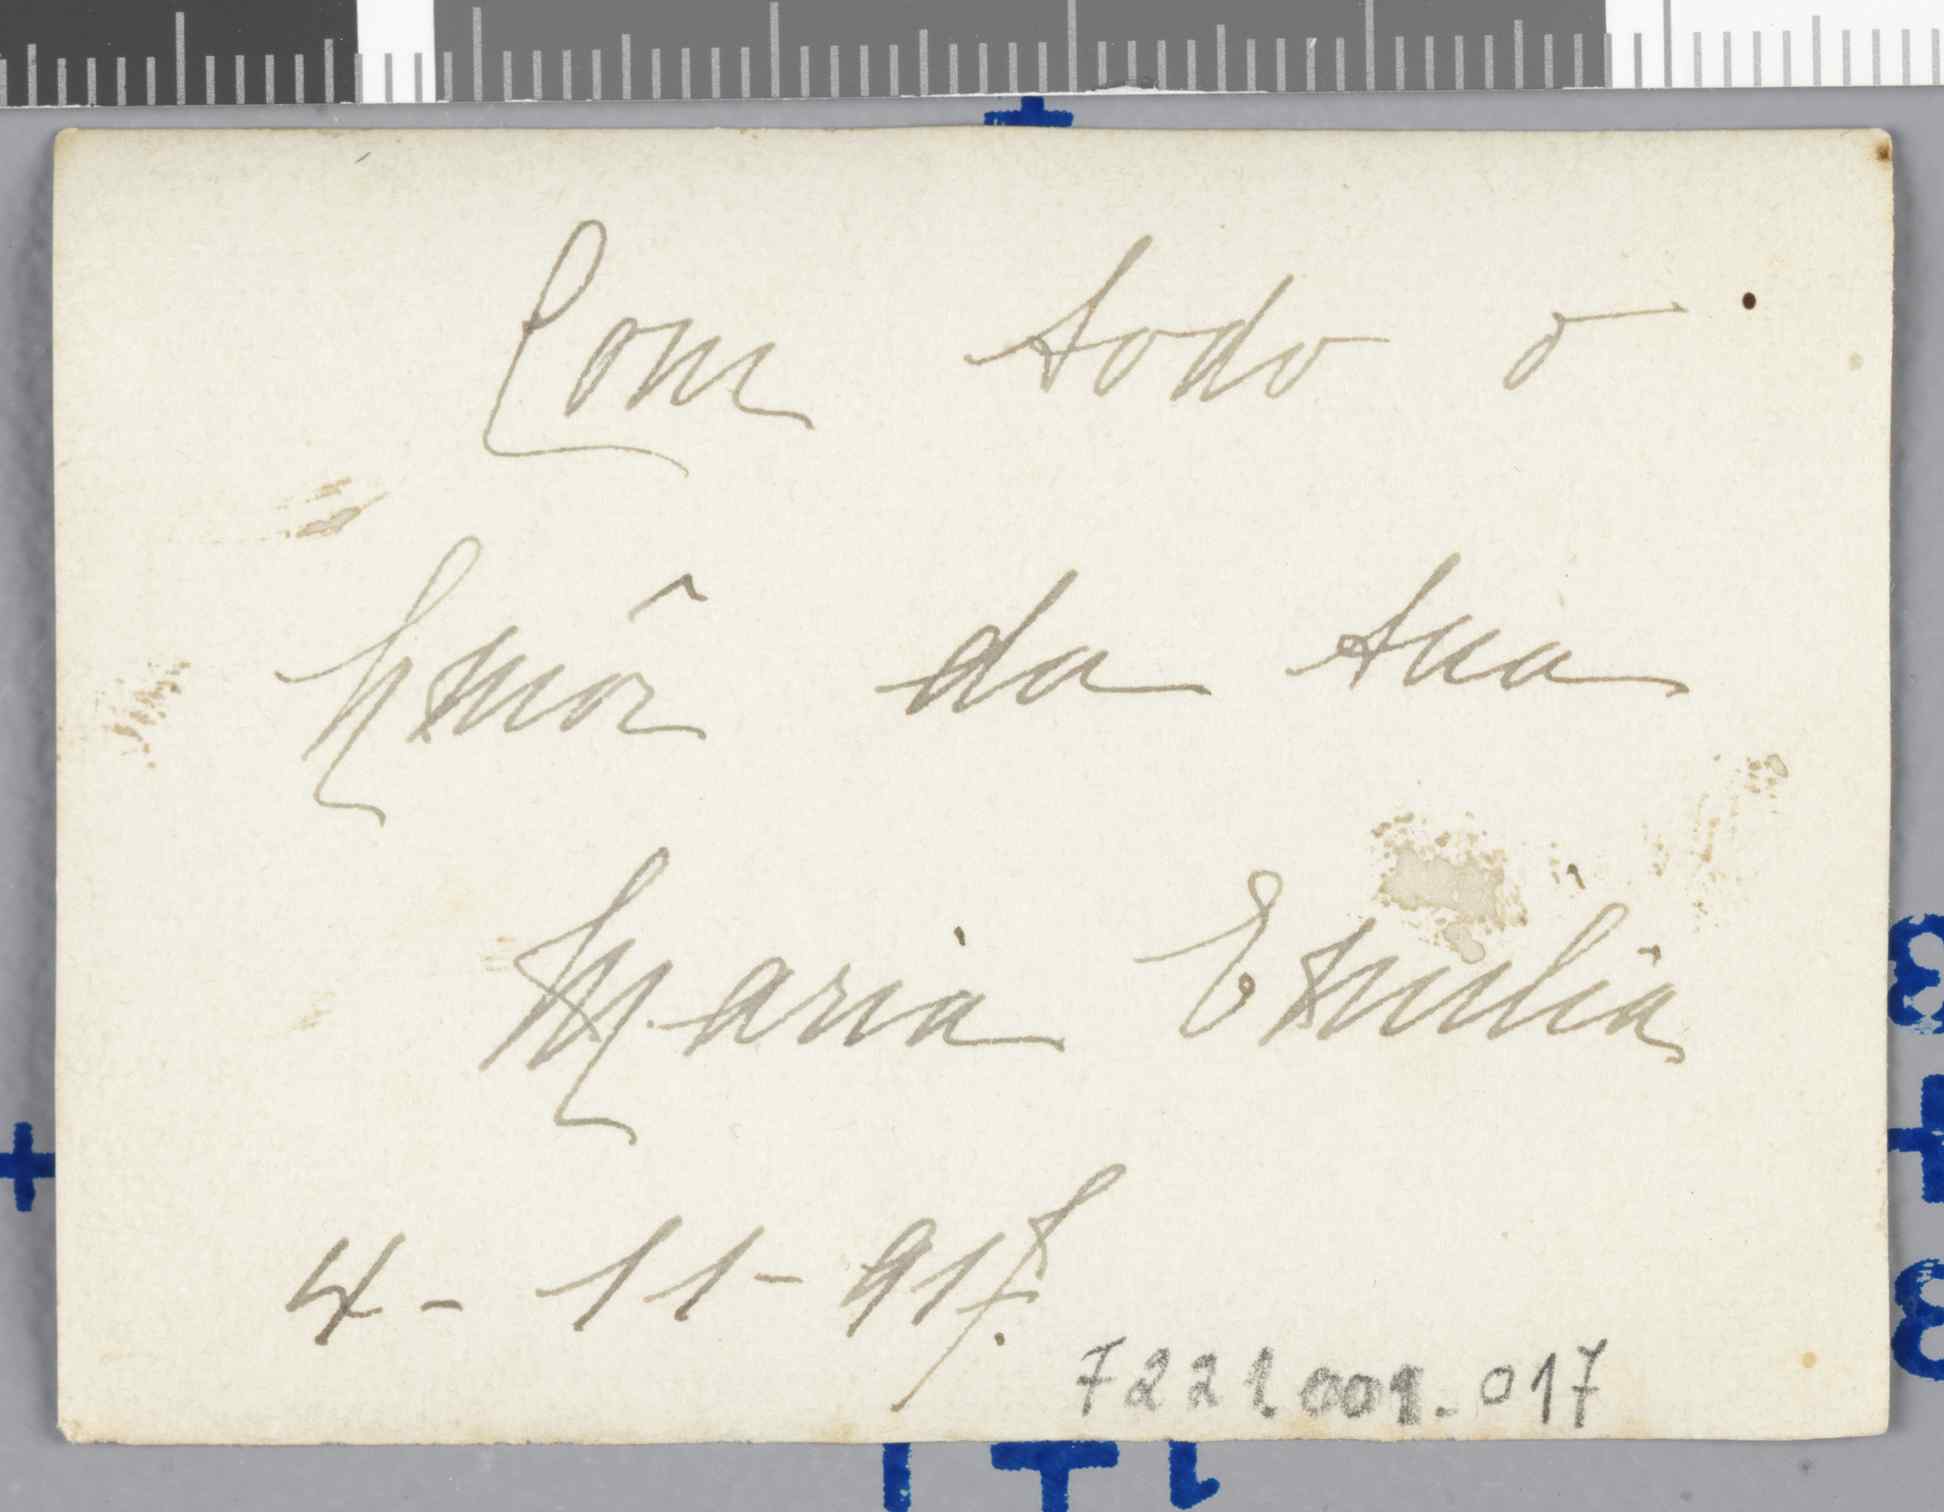 Com todo o
Amôr da tua
Maria Emília
4-11-917.
7221.001.017